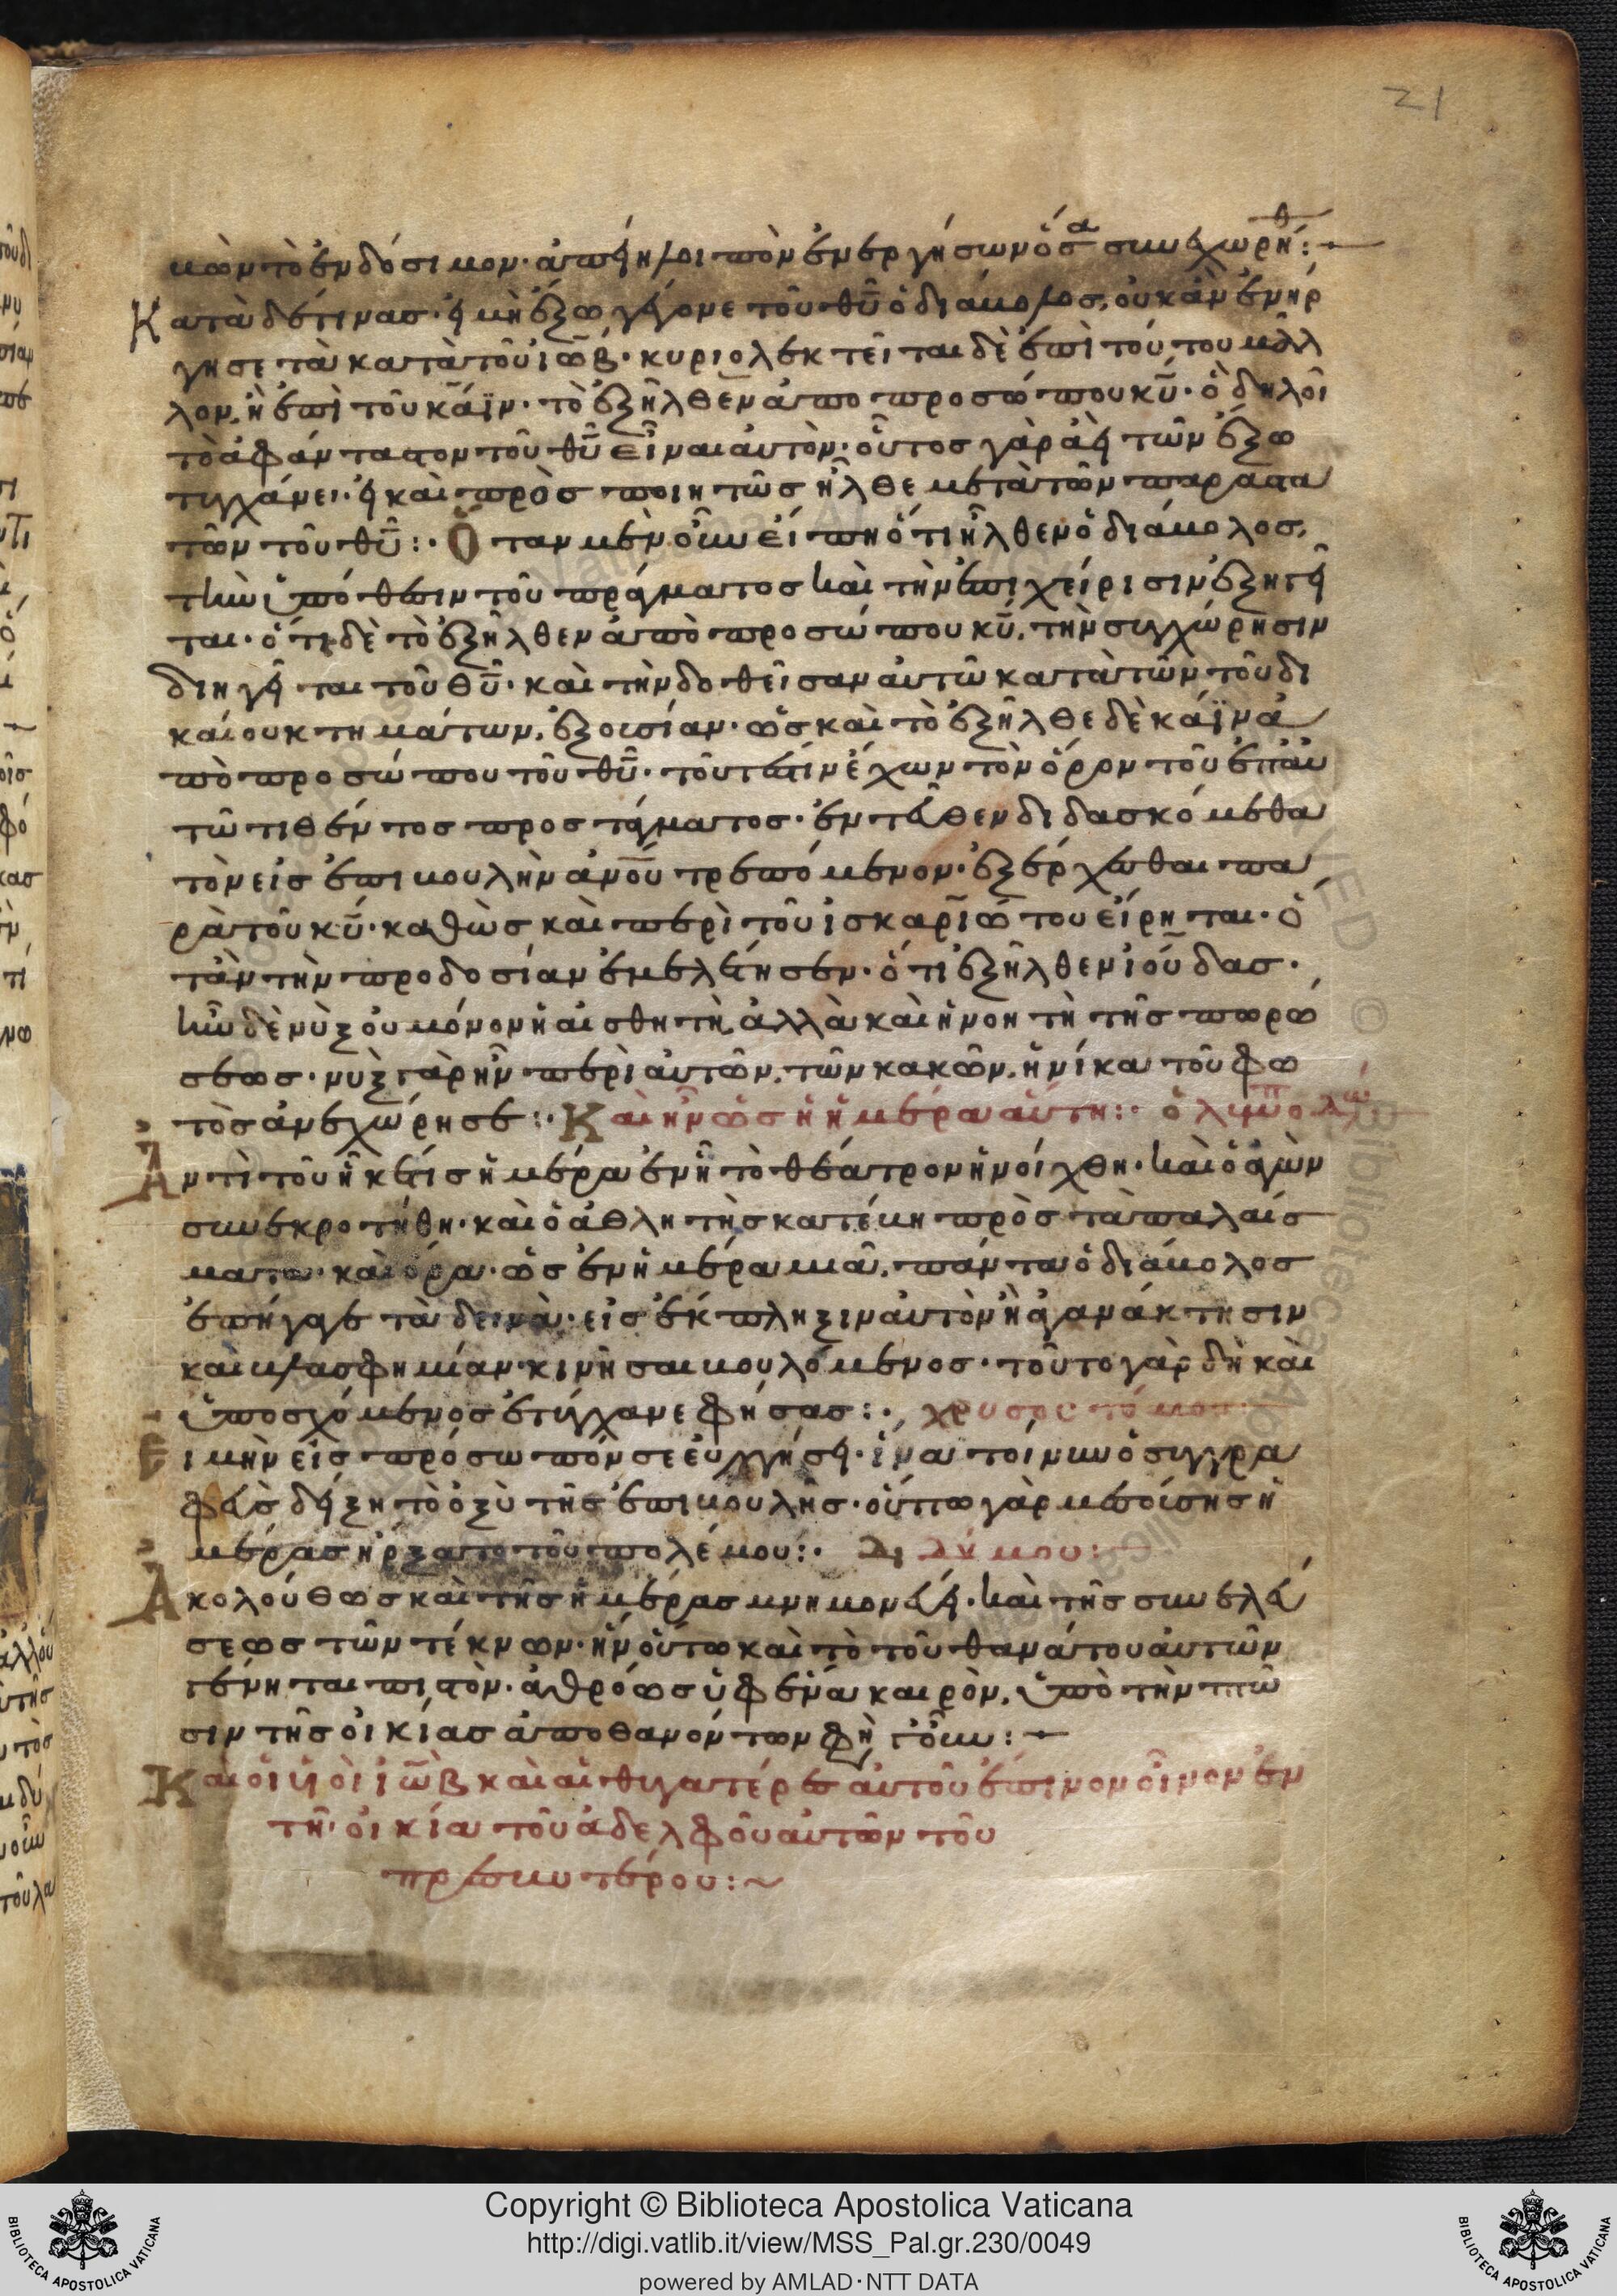 21
βὼν τὸ ἐνδόσιμον· ἀπήει λοιπὸν ἐνεργήσων ὅσα συνεχωρήθ:
Κατὰ δέ τινας· εἰ μὴ ἔξω γέγονε τοῦ θῦ ὁ διάβολος, οὐκ ἂν ἐνήρ
γησε τὰ κατὰ τοῦ ἰώβ· κυριολεκτεῖται δὲ ἐπὶ τούτου μᾶλ
λον, ἢ ἐπὶ τοῦ κάϊν· τὸ ἐξῆλθεν ἀπο προσώπου κῦ· ὃ δηλοῖ
τὸ ἀφάνταστον τοῦ θῦ εἶναι αὐτὸν· οὗτος γὰρ ἀεὶ τῶν ἔξω
τυγχάνει· εἰ καὶ προσποιητῶς ἦλθε μετὰ τῶν παραστα
τῶν τοῦ θῦ:· Ὅταν μὲν οὖν εἴπη ὅτι ἦλθεν ὁ διάβολος,
τὴν ὑπόθεσιν τοῦ πράγματος καὶ τὴν ἐπιχείρισιν ἐξηγεῖ
ται· ὅτι δὲ τὸ ἐξῆλθεν ἀπὸ προσώπου κῦ, τὴν συγχώρησιν
διηγεῖται τοῦ θῦ· καὶ τὴν δοθεῖσαν αὐτῶ κατὰ τῶν τοῦ δι
καίου κτημάτων, ἐξουσίαν· ὡς καὶ τὸ ἐξῆλθε δὲ κάϊν ἀ
πὸ προσώπου τοῦ θῦ· τουτέστιν ἔχων τὸν ὅρον τοῦ ἐπ' αυ
τῶ τιθέντος προστάγματος· ἐντεῦθεν διδασκόμεθα
τὸν εἰς ἐπιβουλὴν ἀνοῦ τρεπόμενον· ἐξέρχεσθαι πα
ρὰ τοῦ κῦ· καθὼς καὶ περὶ τοῦ ἰσκαριώτου εἴρηται· ὅ
τ' ἂν τὴν προδοσίαν ἐμελέτησεν· ὅτι ἐξῆλθεν ἰούδας·
ἦν δὲ νὺξ οὐ μόνον ἡ αἰσθητὴ, ἀλλὰ καὶ ἡ νοητὴ τῆς πωρώ
σεως· νὺξ γὰρ ἦν περὶ αὐτῶν, τῶν κακῶν, ἡνίκα τοῦ φω
τὸς ἀνεχώρησε:· Καὶ ἦν ὡς ἡ ἡμέρα αὕτη:·
Ἀντὶ τοῦ ἥκει τις ἡμέρα ἐν ἧ τὸ θέατρον ἠνοίχθη· καὶ ὁ ἀγὼν
συνεκροτήθη· καὶ ὁ ἀθλητὴς κατέβη πρὸς τὰ παλαίσ
ματα· καὶ ὅρα· ὡς ἐν ἡμέρα μιᾶ, πάντα ὁ διάβολος
ἐπήγαγε τὰ δεινὰ· εἰς ἔκπληξιν αὐτὸν ἢ ἀγανάκτησιν
καὶ βλασφημίαν· κινῆσαι βουλόμενος· τοῦτο γὰρ δὴ καὶ
ὑποσχόμενος ἐτύγχανε φήσας:· χρυσοστόμου:
Εἰ μὴν εἰς πρόσωπόν σε εὐλογήσει· ἵνα τοίνυν ὁ συγγρα
φεὺς δείξη τὸ ὀξὺ τῆς ἐπιβουλῆς· οὔπω γὰρ μεσούσης ἡ
μέρας ἤρξατο τοῦ πολέμου:· διδύμου:
Ἀκολούθως καὶ τῆς ἡμέρας μνημονεύει· καὶ τῆς συνελεύ
σεως τῶν τέκνων· ἵν' οὕτω καὶ τὸ τοῦ θανάτου αὐτῶν
γένηται πιστὸν· ἀθρόως ὑφ' ἕνα καιρὸν, ὑπὸ τὴν πτῶ
σιν τῆς οἰκίας ἀποθανόντων φὴ γ' οὖν:
Καὶ οἱ υἱοὶ ἰὼβ καὶ αἱ θυγατέρες αὐτοῦ ἔπινον οἶνον ἐν
τῆ οἰκία τοῦ ἀδελφοῦ αὐτῶν τοῦ
πρεσβυτέρου:~
Copyright © Biblioteca Apostolica Vaticana
http://digi.vatlib.it/view/MSS_Pal.gr.230/0049
powered by AMLAD·NTT DATA
BIBLIOTECA APOSTOLICA VATICANA
BIBLIOTECA APOSTOLICA VATICANA